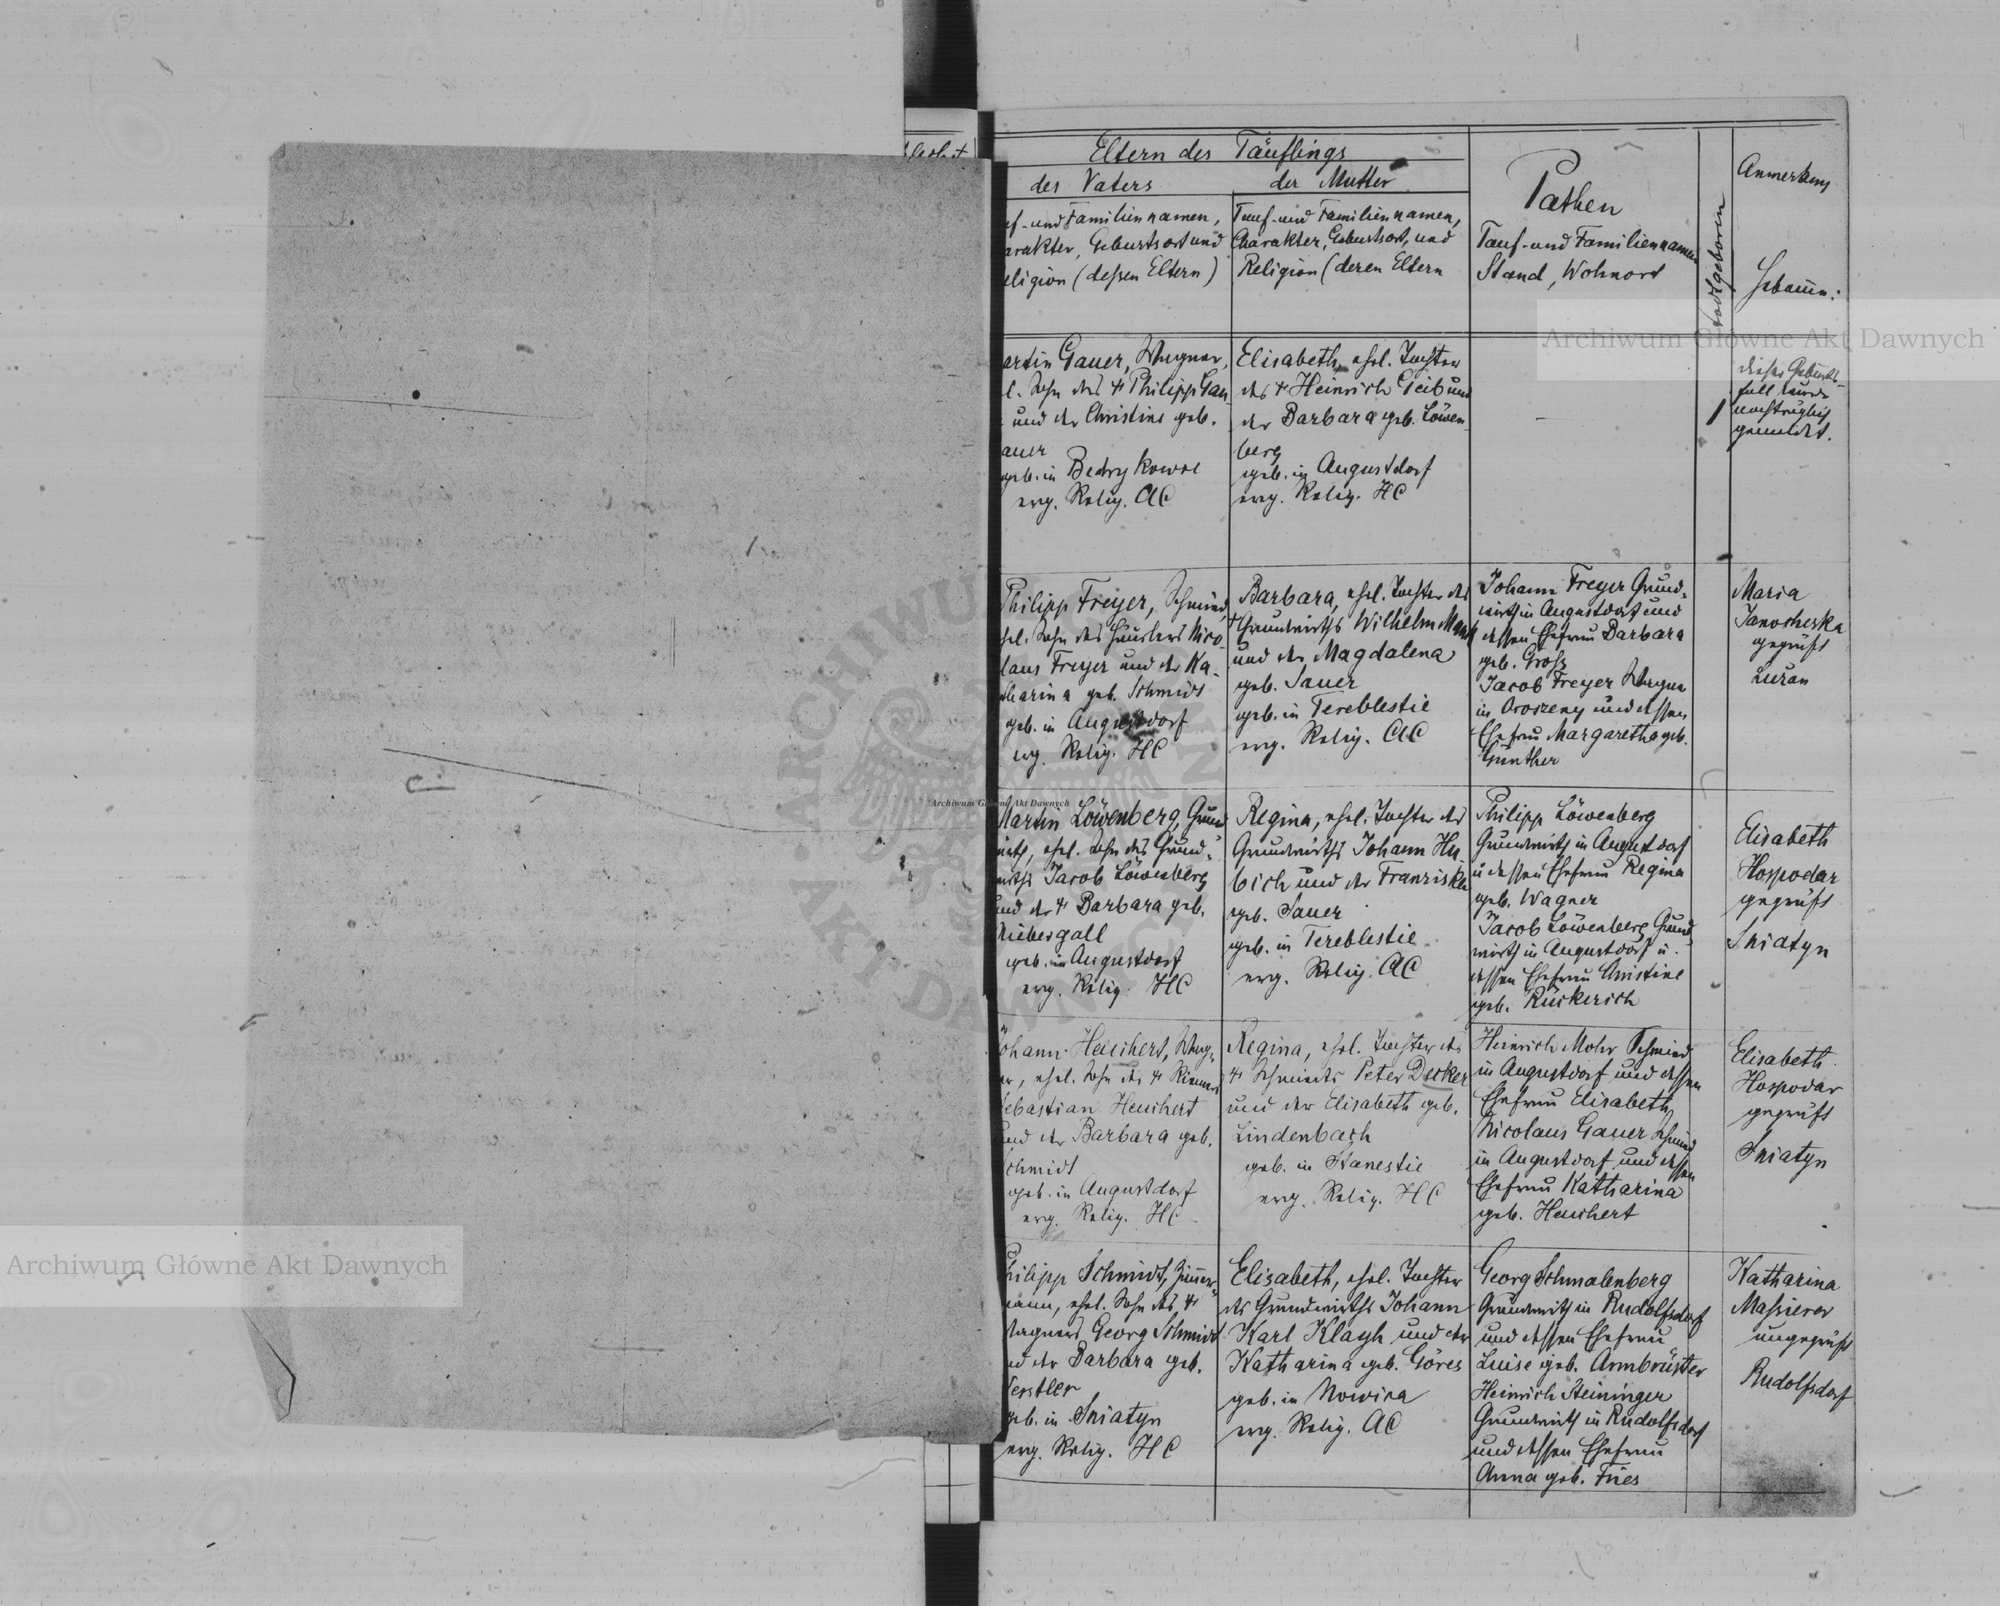 Eltern des Täuflings
des Vaters
uf- und Familiennamen,
arakter, Geburtsort und
eligion (deßen Eltern)
der Mutter
Tauf- und Familiennamen,
Charakter, Geburtsort, und
Religion (deren Eltern
Pathen
Tauf- und Familiennamen
Stand, Wohnort
todtgeboren
Anmerkung
Hebamme:
artin Gauer, Wagner,
l. Sohn des † Philipp Gau-
und der Christine geb.
auer
geb. in Bedrykowce
evg. Relig. AC
Elisabeth, ehel. Tochter
des † Heinrich Geib und
der Barbara geb. Löwen
berg
geb. in Augustdorf
evg. Relig. HC
-
1
dieser Geburts-
fall wurde
nachträglich
gemeldet.
Philipp Freyer, Schmied,
hel. Sohn des Häuslers Nico-
laus Freyer und der Ka-
tharina geb. Schmidt
geb. in Augustdorf
evg. Relig. HC
Barbara, ehel. Tochter des
† Grundwirths Wilhelm
und der Magdalena
geb. Sauer
geb. in Tereblestie
evg. Relig. AC
Johann Freyer Grund-
wirth in Augustdorf und
dessen Ehefrau Barbara
geb. Groß
Jacob Freyer Wagner
in Oroszeny und dessen
Ehefrau Margaretha geb.
Günther
Maria
Janocheska
geprüft
Luzan
Martin Löwenberg, Grund
wirth, ehel. Sohn des Grund-
wirths Jacob Löwenberg
und der † Barbara geb.
Niebergall
geb. in Augustdorf
evg. Relig. HC
Regina, ehel. Tochter des
Grundwirths Johann Hu
bich und der Franziska
geb. Sauer
geb. in Tereblestie
evg. Relig. AC
Philipp Löwenberg
Grundwirth in Augustdorf
u dessen Ehefrau Regina
geb. Wagner
Jacob Löwenberg Grund
wirth in Augustdorf u.
dessen Ehefrau Christine
geb. Rückerich
Elisabeth
Hospodar
geprüft
Sniatyn
Johann Heuchert, Wag-
er, ehel. Sohn des † Riemers
Sebastian Heuchert
und der Barbara geb.
Schmidt
geb. in Augustdorf
evg. Relig. HC
Regina, ehel. Tochter des
† Schmieds Peter Decker
und der Elisabeth geb.
Lindenbach
geb. in Stanestie
evg. Relig. HC
Heinrich Mohr Schmied
in Augustdorf und dessen
Ehefrau Elisabeth
Nicolaus Gauer Schmied
in Augustdorf und dessen
Ehefrau Katharina
geb. Heuchert
Elisabeth
Hospodar
geprüft
Sniatyn
Philipp Schmidt, Zimmer-
mann, ehel. Sohn des †
Wagners Georg Schmidt
nd der Barbara geb.
erstler
geb. in Sniatyn
evg. Relig. HC
Elisabeth, ehel. Tochter
des Grundwirths Johann
Karl Klagh und der
Katharina geb. Göres
geb. in Nowica
evg. Relig. AC
Georg Schmalenberg
Grundwirth in Rudolfsdorf
und dessen Ehefrau
Luise geb. Armbrüster
Heinrich Steininger
Grundwirth in Rudolfsdorf
und dessen Ehefrau
Anna geb. Fries
Katharina
Massierer
ungeprüft
Rudolfsdorf
Archiwum Główne Akt Dawnych
Archiwum Główne Akt Dawnych
Archiwum Główne Akt Dawnych
ARCHIWUM
AKT DAWNYCH